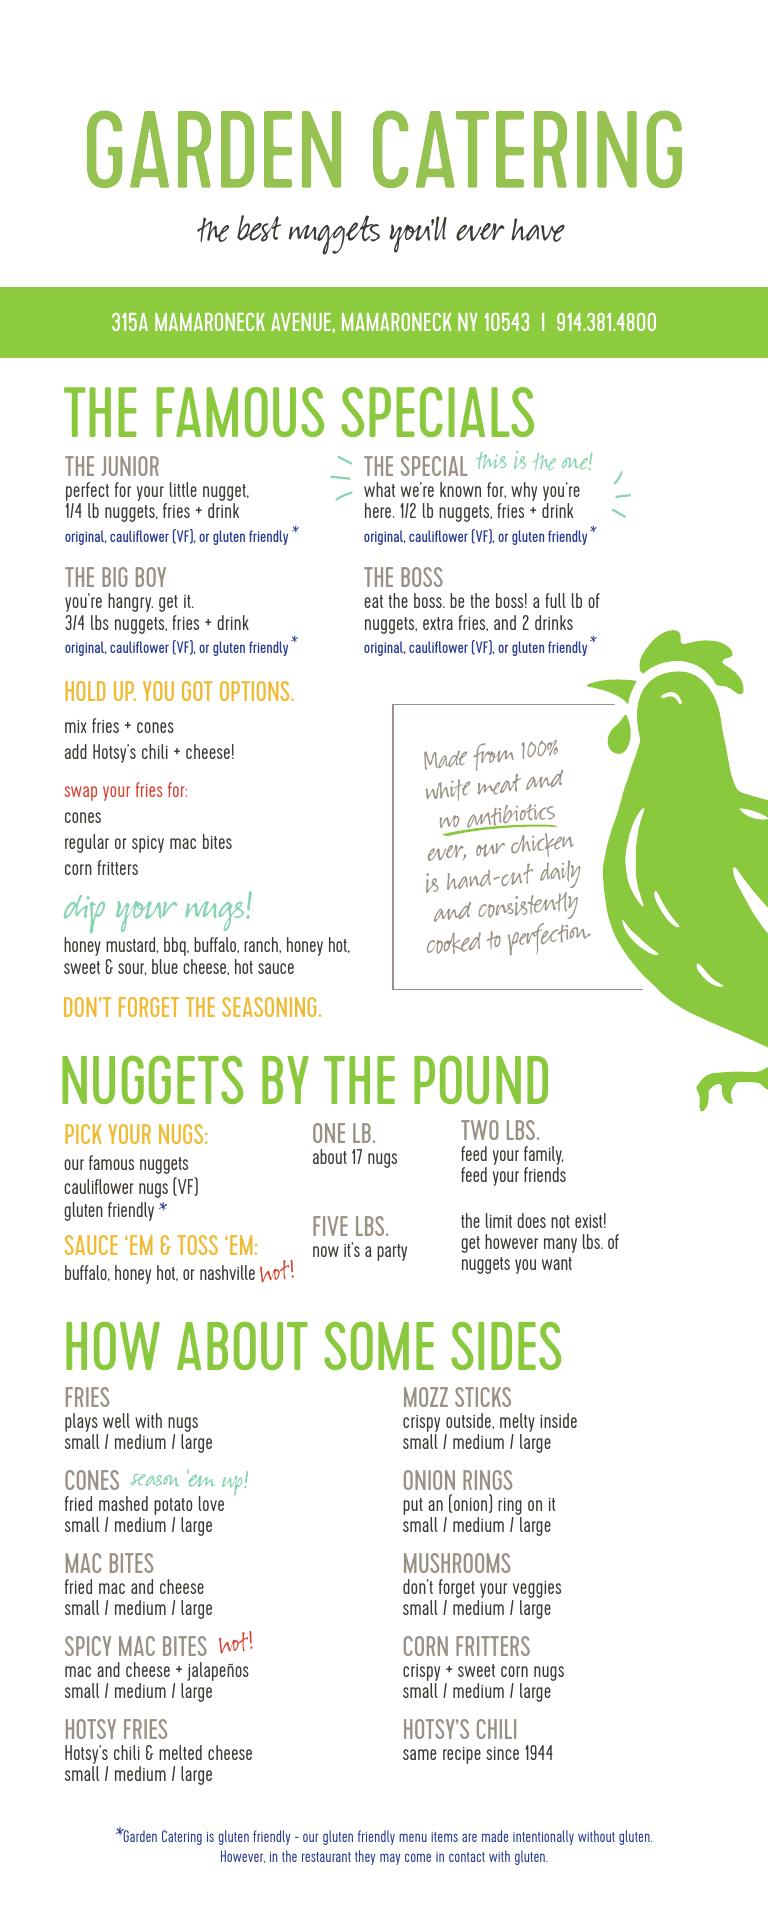 GARDEN CATERING
the best nuggets you'll ever have
315A MAMARONECK AVENUE, MAMARONECK NY 10543 | 914.381.4800
THE FAMOUS SPECIALS
THE JUNIOR
perfect for your little nugget,
1/4 lb nuggets, fries + drink
original, cauliflower (VF), or gluten friendly *
THE SPECIAL this is the one!
what we're known for, why you're
here. 1/2 lb nuggets, fries + drink
original, cauliflower (VF), or gluten friendly *
THE BIG BOY
you're hangry. get it.
3/4 lbs nuggets, fries + drink
original, cauliflower (VF), or gluten friendly *
THE BOSS
eat the boss. be the boss! a full lb of
nuggets, extra fries, and 2 drinks
original, cauliflower (VF), or gluten friendly *
HOLD UP. YOU GOT OPTIONS.
mix fries + cones
add Hotsy's chili + cheese!
swap your fries for:
cones
regular or spicy mac bites
corn fritters
dip your nugs!
honey mustard, bbq, buffalo, ranch, honey hot,
sweet & sour, blue cheese, hot sauce
DON'T FORGET THE SEASONING.
Made from 100%
white meat and
no antibiotics
ever, our chicken
is hand-cut daily
and consistently
cooked to perfection.
NUGGETS BY THE POUND
PICK YOUR NUGS:
our famous nuggets
cauliflower nugs (VF)
gluten friendly *
SAUCE 'EM & TOSS 'EM:
buffalo, honey hot, or nashville hot!
ONE LB.
about 17 nugs
TWO LBS.
feed your family,
feed your friends
FIVE LBS.
now it's a party
the limit does not exist!
get however many lbs. of
nuggets you want
HOW ABOUT SOME SIDES
FRIES
plays well with nugs
small / medium / large
CONES season 'em up!
fried mashed potato love
small / medium / large
MAC BITES
fried mac and cheese
small / medium / large
SPICY MAC BITES hot!
mac and cheese + jalapeños
small / medium / large
HOTSY FRIES
Hotsy's chili & melted cheese
small / medium / large
MOZZ STICKS
crispy outside, melty inside
small / medium / large
ONION RINGS
put an (onion) ring on it
small / medium / large
MUSHROOMS
don't forget your veggies
small / medium / large
CORN FRITTERS
crispy + sweet corn nugs
small / medium / large
HOTSY'S CHILI
same recipe since 1944
*Garden Catering is gluten friendly - our gluten friendly menu items are made intentionally without gluten.
However, in the restaurant they may come in contact with gluten.